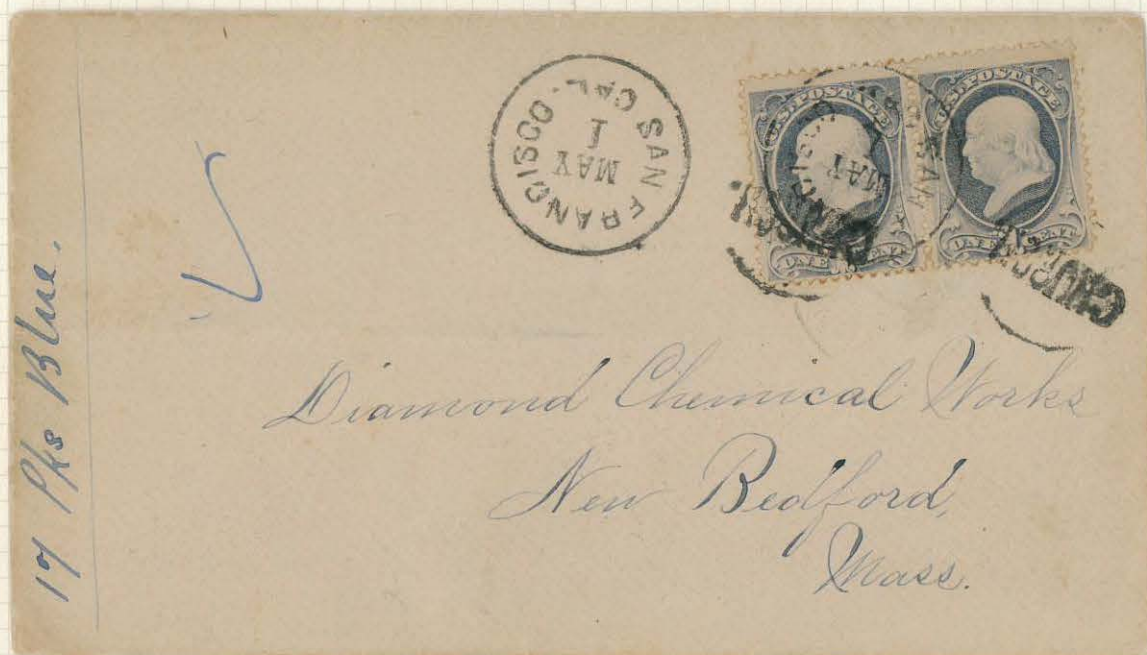 17 Pks Blue.
SAN FRANCISCO CAL.
MAY
1
U.S. POSTAGE
ONE CENT
U.S. POSTAGE
ONE CENT
MAY
Diamond Chemical Works
New Bedford,
Mass.